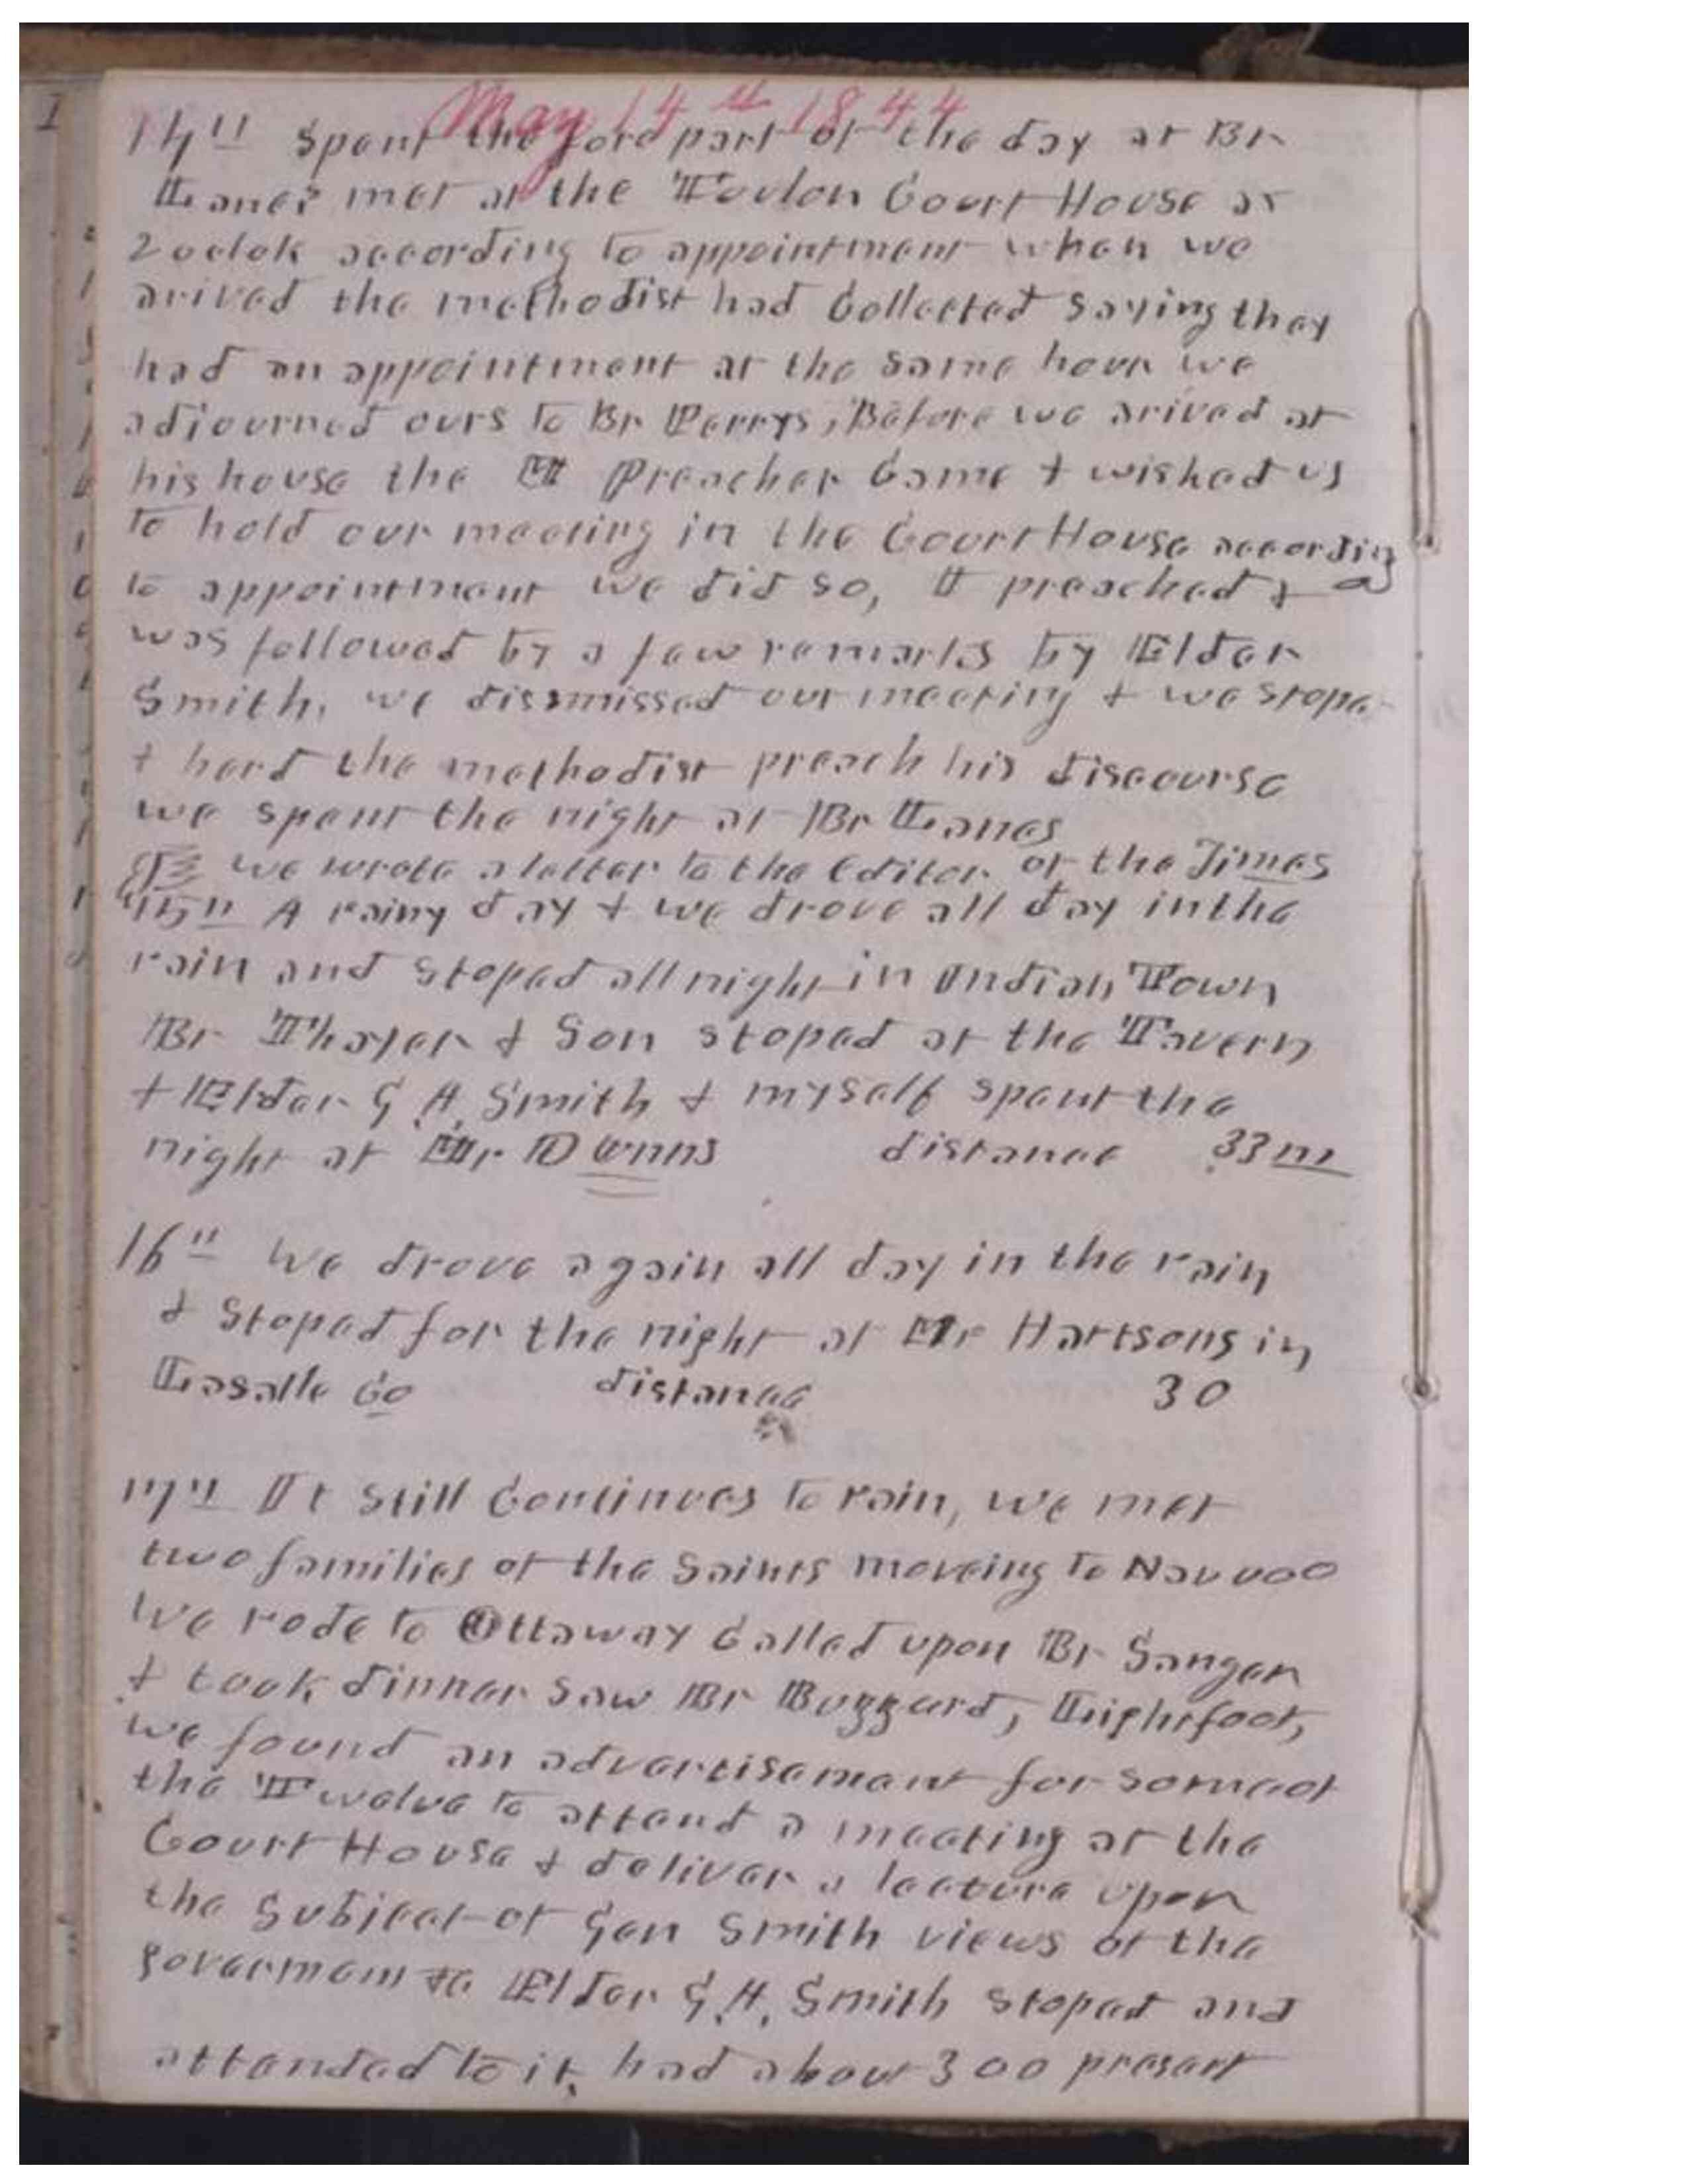 May 14th 1844
14th Spent the fore part of the day at Br
Lanes met at the Toulon Court House at
2 oclok according to appointment when we
arived the methodist had Collected Saying they
had an appointment at the same hour we
adjourned ours to Br Perrys, Before we arived at
his house the M Preacher Came & wished us
to hold our meeting in the Court House according
to appointment we did so, I preached &
was followed by a few remarks by Elder
Smith, we dissmissed our meeting & we stoped
& herd the methodist preach his discourse
we spent the night at Br Lanes
we wrote a letter to the Editor of the Times
15th A rainy day & we drove all day in the
rain and stoped all night in Indian Town
Br Thayer & Son stoped at the Tavern
& Elder G. A. Smith & myself spent the
night at Mr D unns distance 33 m
16th We drove again all day in the rain
& Stoped for the night at Mr Hartsons in
Lasalle Co distance 30
17th It still Continues to rain, we met
two families of the Saints moveing to Nauvoo
We rode to Ottaway Called upon Br Sanger
& took dinner saw Br Buzzard, Lightfoot,
we found an advertisement for some of
the Twelve to attend a meeting at the
Court House & deliver a lecture upon
the Subject of Gen Smith views of the
goverment Elder G. A. Smith stoped and
attended to it, had about 300 present